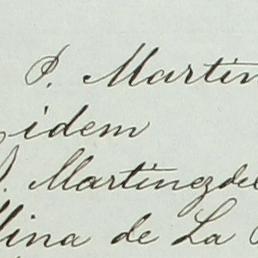 P. Martin
idem
P. Martinez del
llina de La